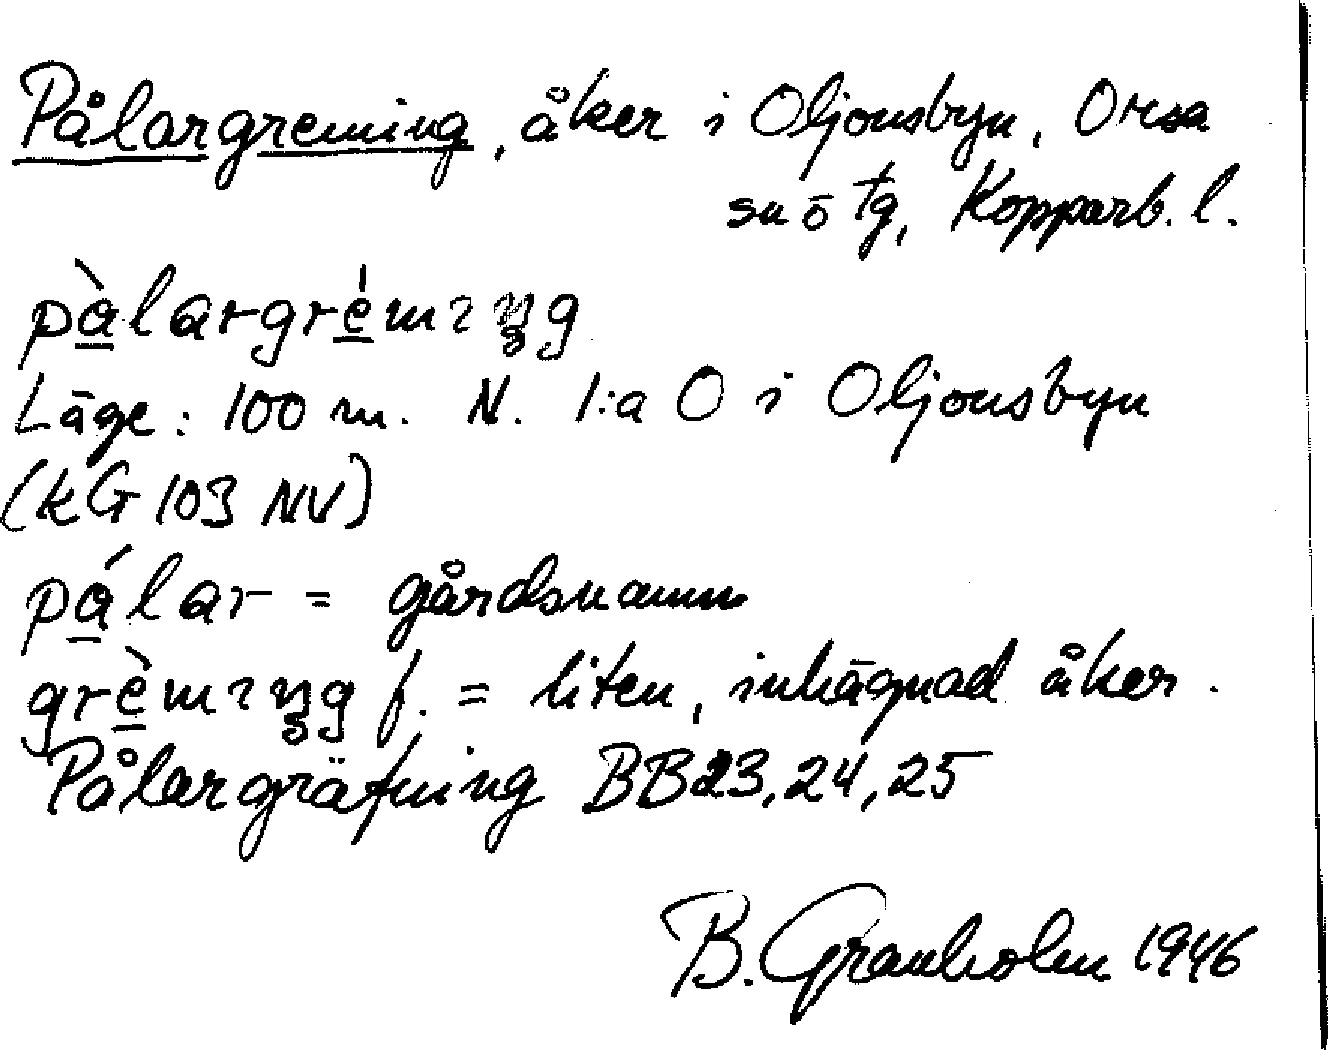 Pålargreming, åker i Oljonsbyn, Orsa
sn o tg, Kopparb. l.
pàlargrémıŋg
Läge: 100 m. N. 1:a O i Oljonsbyn
(kG 103 NV)
pálar = gårdsnamn
grèmıŋg f. = liten, inhägnad åker.
Pålargräfning BB23,24,25
B. Granholm 1946